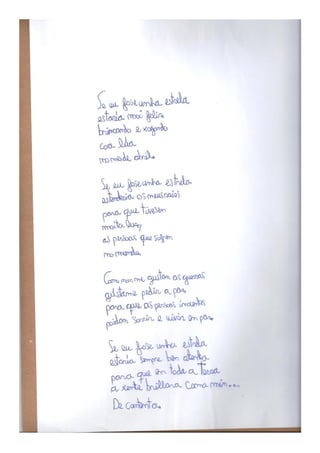 Se eu fose unha estrela
estaría moi feliz
brincando e xogando
coa lúa
no mes de abril.
Se eu fose unha estrela
estendería os meus raios
para que tivesen
moita luz,
as persoas que sofren
no mundo.
Como non me gustan as guerras
gústame pedir a paz
para que as persoas inocentes
poidan sorrir e vivir en paz.
Se eu fose unha estrela
estaría sempre ben atenta
para que en toda a Terra
a xente brillara coma min...
De contento.